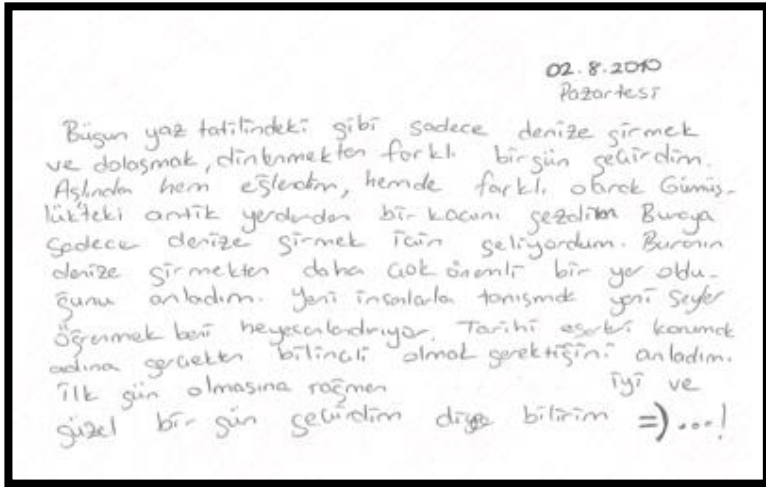 02.8.2010
Pazartesi
Bügun yaz tatilindeki gibi sadece denize girmek
ve dolaşmak, dinlenmekten farklı bir gün geçirdim.
Aslında hem eğlendim, hemde farklı olarak Gümüş-
lük'teki antik yerlerden bir kaçını gezdim Buraya
Sadece denize girmek için geliyordum. Buranın
denize girmekten daha çok önemli bir yer oldu-
ğunu anladım. Yeni insanlarla tanışmak yeni şeyler
öğrenmek beni heyecanlandırıyor. Tarihi eserleri korumak
adına gerçekten bilinçli olmak gerektiğini anladım.
İlk gün olmasına rağmen iyi ve
güzel bir gün geçirdim diye bilirim =)...!